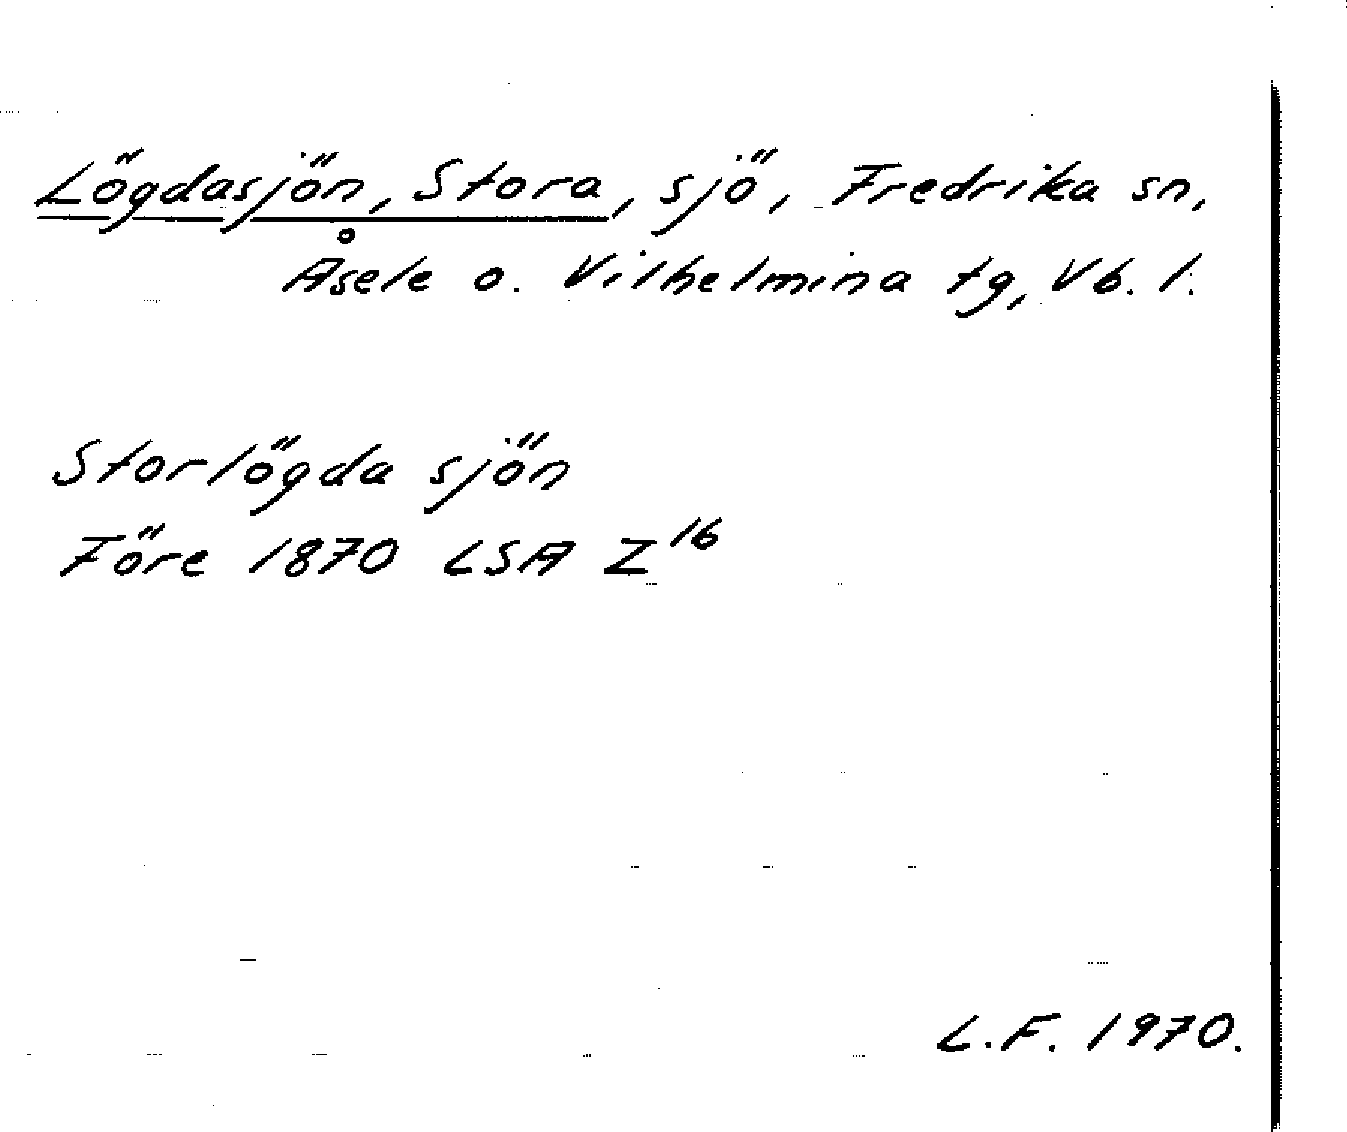 Lögdasjön, Stora, sjö, Fredrika sn,
Åsele o. Vilhelmina tg, Vb. l.
Storlögda sjön
Före 1870 LSA Z16
L.F. 1970.